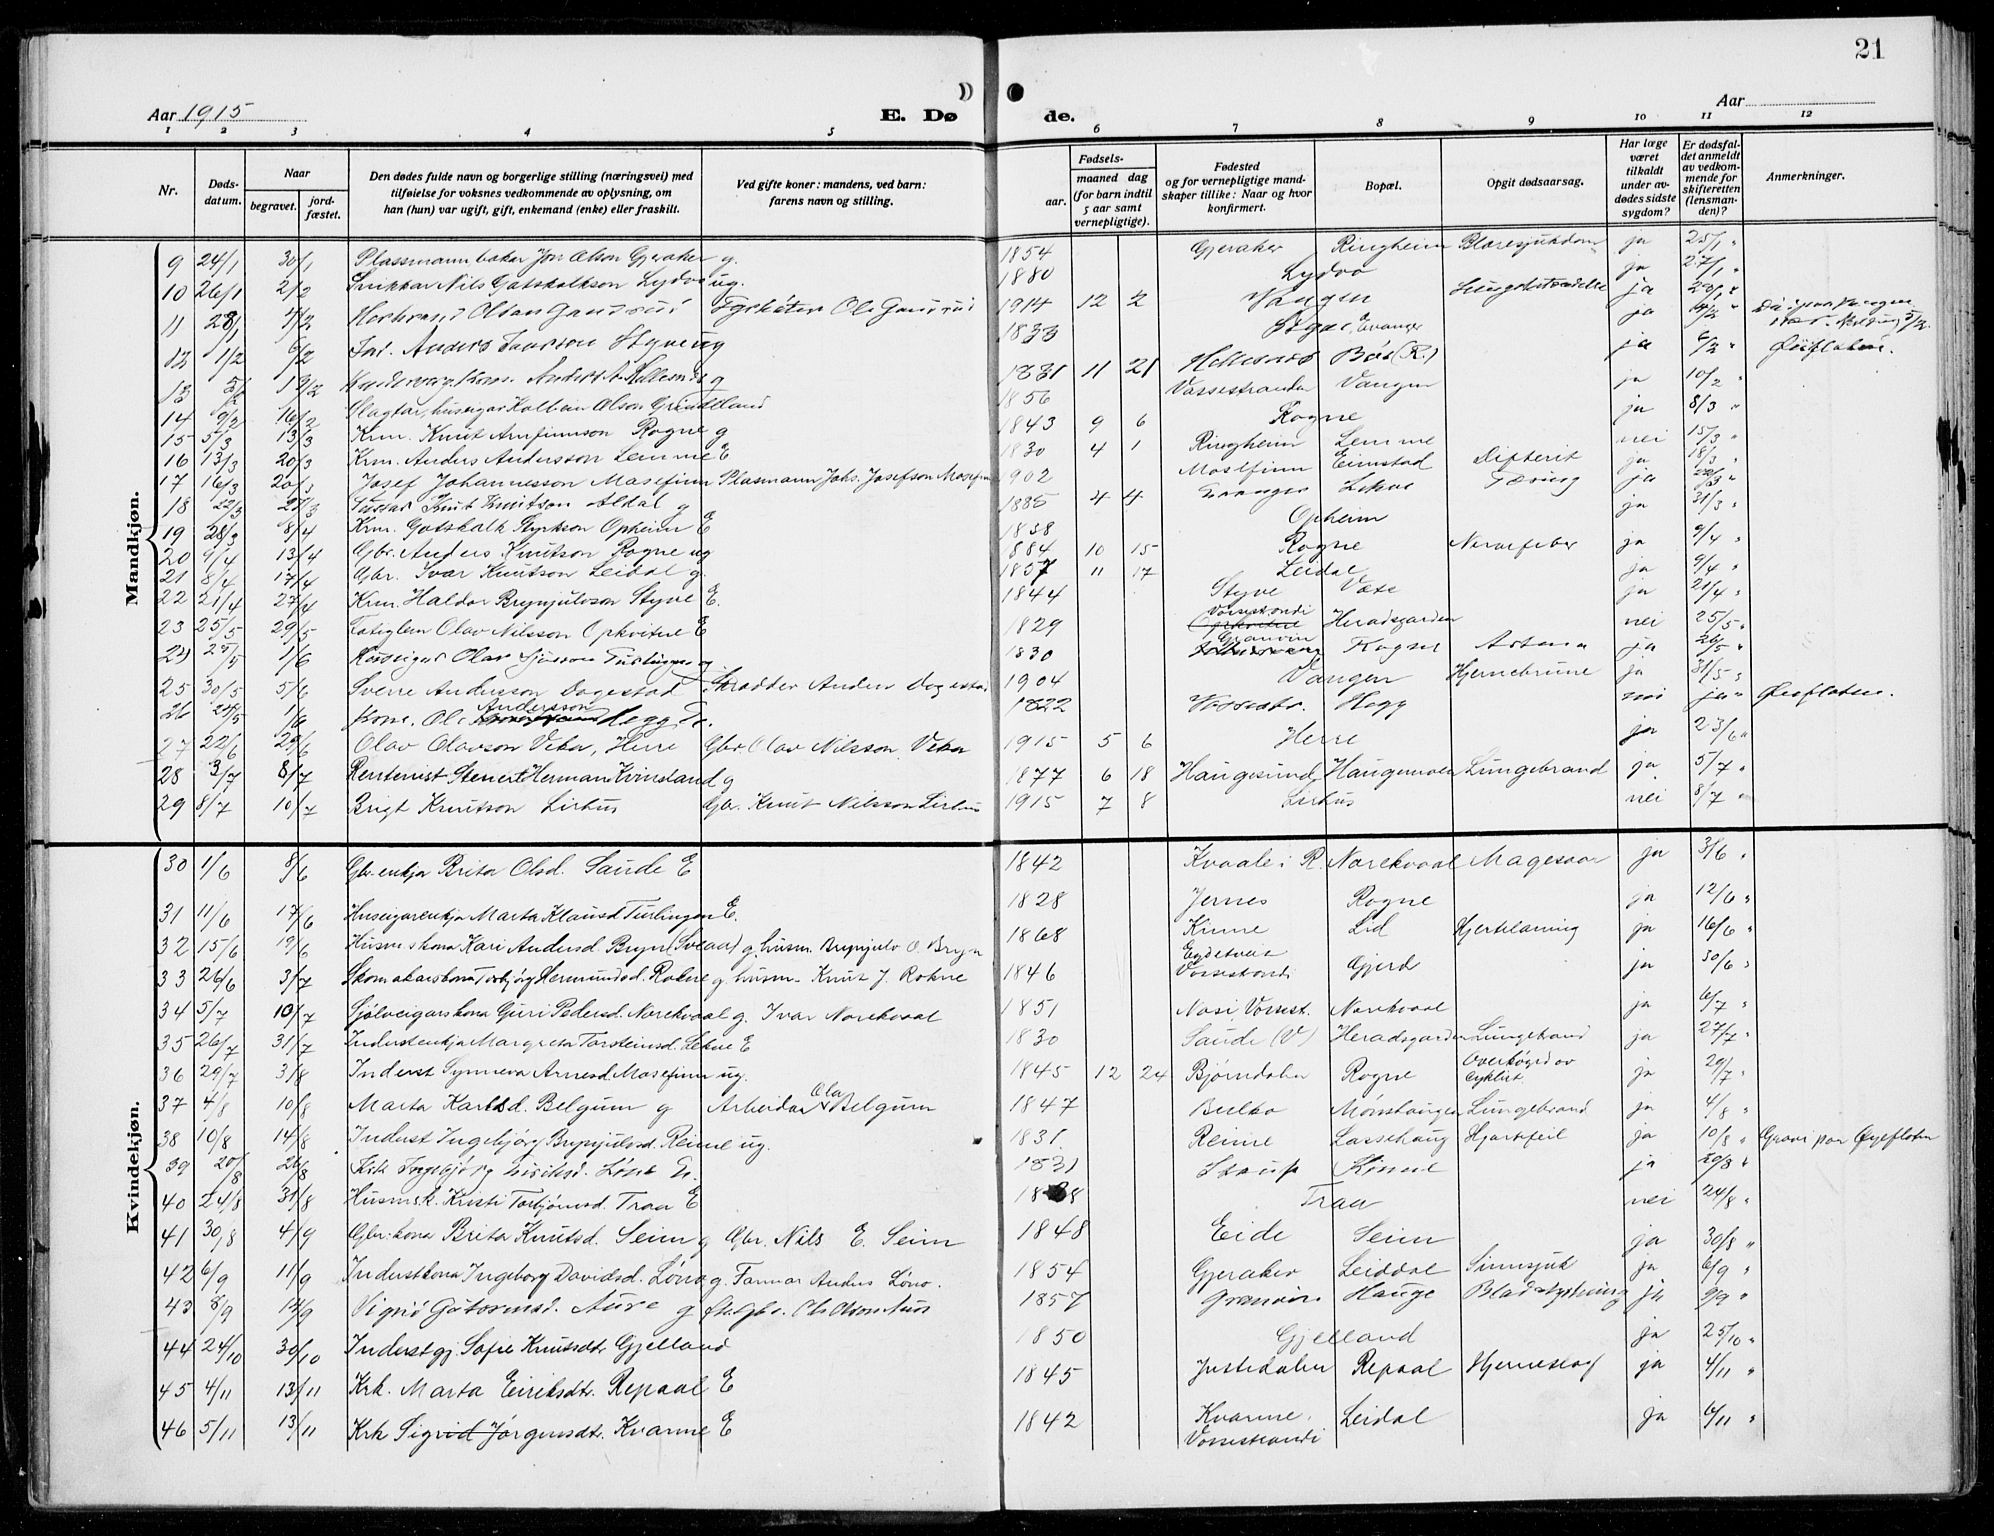 21
Aar 1915 E. Dø de. Aar
1 2 3 4 5 6 7 8 9 10 11 12
Nr. Døds-datum. Naar begravet. jord-fæstet. Den dødes fulde navn og borgerlige stilling (næringsvei) med tilføielse for voksnes vedkommende av oplysning, om han (hun) var ugift, gift, enkemand (enke) eller fraskilt. Ved gifte koner: mandens, ved barn: farens navn og stilling. Fødsels- aar. maaned dag (for barn indtil 5 aar samt vernepligtige). Fødested og for vernepligtige mandskaper tillike: Naar og hvor konfirmert. Bopæl. Opgit dødsaarsag. Har læge været tilkaldt under avdødes sidste sygdom? Er dødsfaldet anmeldt av vedkommende for skifteretten (lensmanden)? Anmerkninger.
Mandkjøn.
9 24/1 30/1 Plassmann Jon Olson Gjeraker g. 1854 Gjeraker Ringheim Blæresjukdom ja 25/1 "
10 26/1 2/2 Snikkar Nils Gotskalkson Lydvo ug. 1880 Lydvo ja 27/1 "
11 28/1 4/2 Olson 1914 12 2 Vangen ja
12 1/2 6/2 Anders Styve ug 1833 Evanger ja
13 5/2 19/2 Anders g 1831 11 21 Bøe (R.) ja 6/2 " Øiefloten.
14 9/2 16/2 Slagtar, huseigar Kolbein Olson Grindland 1856 Vossestranden Vangen ja 10/2 "
15 5/3 13/3 Krm. Knut Arnfinnson Rogne g 1843 9 6 Rogne ja 8/3 "
16 13/3 20/3 Krm. Anders Andersson Lemme E 1830 4 1 Ringheim Lemme nei 15/3 "
17 16/3 20/3 Josef Johannesson Mosefinn Plasmann Johs. Josefson Mosefinn 902 Mosefinn Eimstad Difterit ja 18/3 "
18 22/3 27/3 Knut Knutson Aldal g 1885 4 4 Evanger Lekve Tæring ja 22/3 "
19 28/3 8/4 Krm. Gotskalk Styrkson Opheim E 1838 Opheim ja 31/3 "
20 9/4 13/4 Gbr. Anders Knutson Rogne ug 884 10 15 Rogne Nervefeber ja 9/4 "
21 8/4 17/4 Gbr. Ivar Knutson Leidal g. 1857 11 17 Leidal ja 9/4 "
22 21/4 27/4 Krm. Haldor Brynjulvson Styve E. 1844 Styve Væte ja 21/4 "
23 25/5 29/5 Fatiglem Olav Nilsson Opkvitne E 1829 Vossestrandi Heradsgarden nei 25/5 "
24 25/5 1/6 Huseigar Olav g 1830 Granvin Astma ja 26/5 "
25 30/5 5/6 Sverre Andersson Dagestad Skradder Anders Dagestad 1904 Vangen Hjernebrune ja 31/5 "
26 24/5 1/6 Kone. Ole Andersson Hegg E. 1822 Vossestr. Hegg nei ja " Øiefloten.
27 22/6 29/6 Olav Olavson Veka, Herre Gbr Olav Nilsson Veka 1915 5 6 Herre ja 23/6 "
28 3/7 8/7 Rentenist Stener Herman Kvinsland g 1877 6 18 Haugesund Haugamoen Lungebrand ja 5/7 "
29 8/7 10/7 Brigt Knutson Lirhus Gbr. Knut Nilsson Lirhus 1915 7 8 Lirhus nei 8/7 "
Kvindekjøn.
30 1/6 8/6 Gbr. enkja Brita Olsd. Saude E 1842 Kvaale i R. Norekvaal Magesaar ja 3/6 "
31 11/6 17/6 Huseigarenkja Marta Klausd Turlingen E. 1828 Jernes Rogne ja 12/6 "
32 15/6 19/6 Husmskona Kari Andersd. Bryn (Sveaa) g. husm. Brynjulv O. Bryn 1868 Kinne Lid Hjertelaming ja 16/6 "
33 26/6 3/7 Skomakarskona Torbjørg Hermundsd. Rokne g husm. Knut J. Rokne 1846 Eggetveit Vossestrand. Gjerd ja 30/6 "
34 5/7 10/7 Sjølveigarskona Guri Pedersd. Norekvaal g. Ivar Norekvaal 1851 Nasi Vossest. Norekvaal ja 6/7 "
35 26/7 31/7 Inderstenkja Margreta Torsteinsd. Lekve E 1830 Saude (V) Heradsgarden Lungebrand ja 27/7 "
36 29/7 3/8 Inderst Synneva Arnesd. Mosefinn ug. 1845 12 24 Bjørndalen Rogne Overkøyrd av Cyklist. ja 29/7 "
37 4/8 10/8 Marta Karlsd. Belgum g Arbeidar Ola Belgum 1847 Bulko Mønshaugen Lungebrand ja 4/8 "
38 10/8 14/8 Inderst Ingebjørg Brynjulvsd. Reime ug. 1831 Reime Lassehaug Hjartefeil ja 10/8 " Gravi paa Øyefloten
39 20/8 26/8 Krk Ingebjørg Eriksd. Løne E. 1831 Kinne ja 20/8 "
40 24/8 31/8 Husmsk. Kristi Torbjørnsd. Traa E 18 8 Traa nei 24/8 "
41 30/8 4/9 Gbr.kona Brita Knutsd. Seim g Gbr. Nils E. Seim 1848 Eide Seim ja 30/8 "
42 6/9 11/9 Inderstkona Ingeborg Davidsd. Løno g. Farmar Anders Løno. 1854 Gjeraker Leiddal Sinnsjuk ja 6/9 "
43 8/9 14/9 Vigrid Gutormsd. Aure g 1857 Granvin Hauge Blodstyrtning ja 9/9 "
44 24/10 30/10 Inderstgj. Sofie Knutsdtr. Gjelland 1850 Gjelland ja 25/10 "
45 4/11 13/11 Krk. Marta Eiriksdtr. Repaal E 1845 Justedalen Repaal Hjerneslag ja 4/11 "
46 5/11 13/11 Krk Sigrid Jørgensdtr. Kvarme E 1842 Kvarme, Vossestrandi Leidal ja 6/11 "